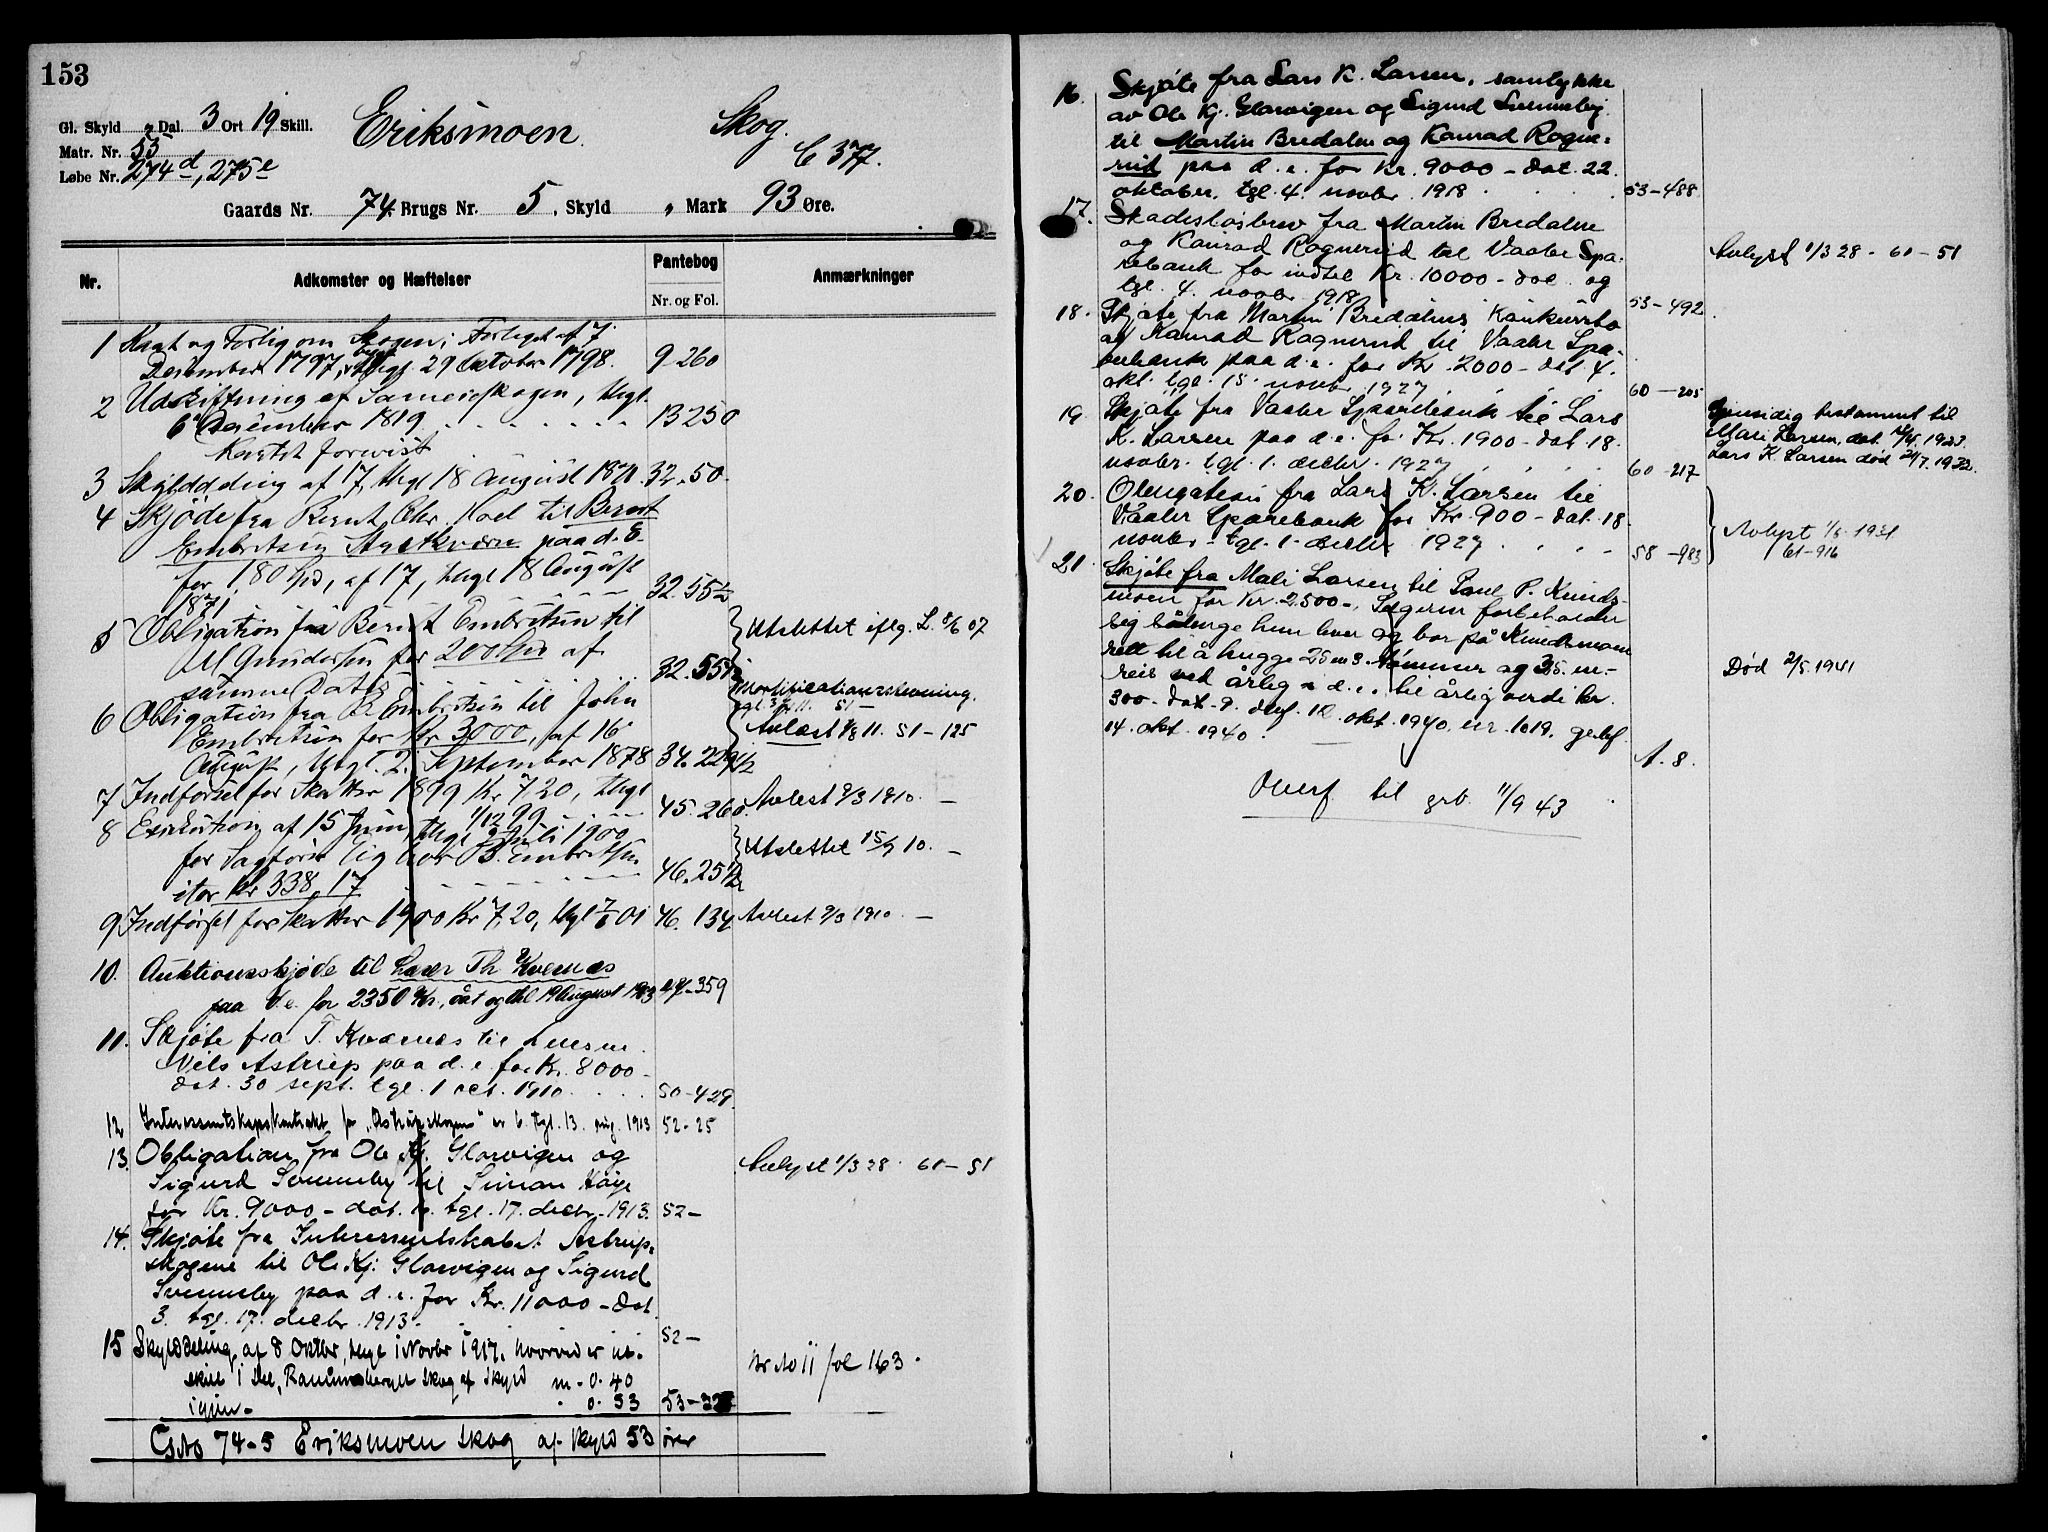 153
Gl. Skyld " Dal. 3 Ort 19 Skill. Eriksmoen. Skog.
Matr. Nr. 55
C 377.
Løbe Nr. 274d, 275e
Gaards Nr. 74. Brugs Nr. 5, Skyld " Mark 93 Øre.
Nr. Adkomster og Hæftelser Pantebog Anmærkninger
Nr. og Fol.
1 og Forlig om Skogen, Forliget af 7
December 1797, thgl. 29 Oktober 1798. 9 260
2 Udskiftning af Sameieskogen, thgl.
6 December 1819 13 250
Kartet forevist
3 Skylddeling af 17, thgl 18 August 1871. 32. 50.
4 Skjøde fra Bernt Chr. til Bernt
Embretsen paa d. E.
for 180 Spd, af 17, thgl 18 August
1871 32. 55½
5 Obligation fra Bernt Embretsen til
M Gundersen for 200 Spd af
samme Dato 32. 55½
Utslettet iflg. L. 8/6 07
6 Obligation fra B. Embretsen til John
Embretsen for Kr 3000, af 16
August, thgl. 2. September 1878 34. 229½
Mortificationsstevning.
Avlæst 11. 51 – 125
7 Indførsel for Skatter 1899 Kr 7,20, thgl
1/12 99 45. 260. Avlest 9/3 1910. –
8 Execution af 15 Juni, thgl 2 Juli 1900
for Sagfører hos B. Embretsen
stor Kr 338,17 46. 25½ Utslettet 15/9 10. –
9 Indførsel for Skatter 1900 Kr 7,20, thgl 01 46. 134 Avlest 9/3 1910. –
10. Auktionsskjøde til Th Kvernes
paa d.e. for 2350 Kr, dat og thl 19 August 1903 49-359
11. Skjøte fra T. Kværnes til
Nils Astrup paa d. e. for Kr. 8000 –
dat. 30 sept. tgl. 1 oct. 1910 50-429.
12 Interessentskapskontrakt for "Astrupskogene" tgl. 13. aug. 1913 52-25
13. Obligation fra Ole Kj. Glorvigen og
Sigurd Svenneby til Simon
for Kr. 9000 – dat. tgl. 17. decbr. 1913. 52 –
Avlyst 1/3 28. 61 – 51
14. Skjøte fra Interessentskabet Astrup-
skogene til Ole Kj. Glorvigen og Sigurd
Svenneby paa d. e. for Kr. 11000 – dat
3. tgl. 17. decbr. 1913. 52 –
15 Skylddeling af 8 Oktbr, thgl 1 Novbr 1917. hvorved er ut-
skilt 1 Del, skog af Skyld m – 0. 40
igjen – 0. 53 53 –
Br No 11 fol 163.
No 74-5 Eriksmoen skog af skyld 53 ører
16. Skjøte fra Lars K. Larsen, samtykke
av Ole Kj. Glorvigen og Sigurd Svenneby
til Martin Bredalen og Konrad Rogne-
rud paa d. e. for Kr. 9000 – dat. 22.
oktober. tgl. 4. novbr. 1918. 53-488.
17. Skadesløsbrev fra Martin Bredalen
og Konrad Rognerud til Vaaler Spa-
rebank for indtil Kr. 10000 – dat. og
tgl. 4. novbr 1918 53-492.
Avlyst 1/3 28 – 61 – 51
18. Skjøte fra Martin Bredalens Konkursbo
og Konrad Rognerud til Vaaler Spa-
rebank paa d. e. for Kr. 2000 – dat. 4.
okt. tgl. 15. novbr 1927 60 – 205
19. Skjøte fra Vaaler Sparebank til Lars
K. Larsen paa d. e. for Kr. 1900 – dat. 18.
novbr. tgl. 1. decbr. 1927 60 – 217
Gjensidig testament til
Mari Larsen, dat.
Lars K. Larsen død 21/7. 1932.
20. Obligation fra Lars K. Larsen til
Våaler Sparebank for Kr. 900 – dat. 18
novbr. tgl. 1. decbr. 1927 58 – 983
Avlyst 1931
61-916
21. Skjøte fra Mali Larsen til Paul P. Kinds-
moen for Kr. 2500 –. Selgeren forbeholder
seg sålenge hun lever og bor på Kindsmoen
rett til å hugge 25 m3. tømmer og 35 m.
reis ved årlig i d. e., til årlig verdi kr.
300 – dat. 9. 12. okt. 1940. nr. 1019.
14. okt. 1940. A. 8.
Død 2/5. 1941
Overf. til grb. 11/9 43